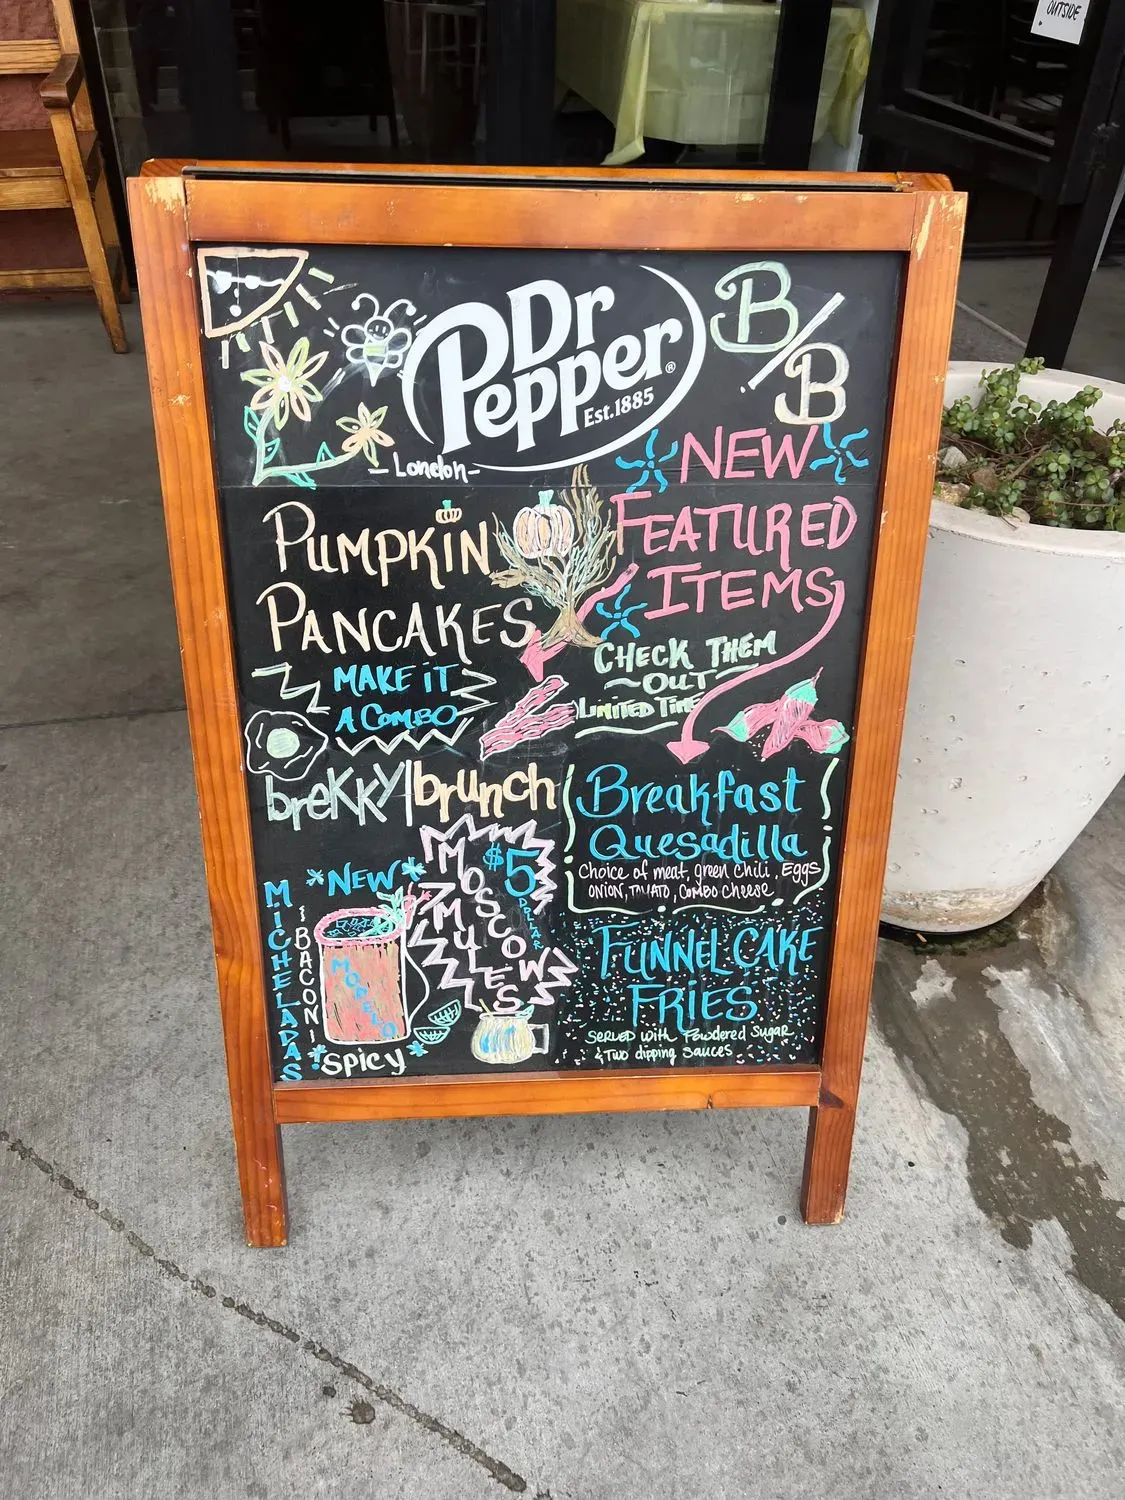 OUTSIDE
Dr
Pepper®
Est.1885
B/B
- London -
NEW
FEATURED
ITEMS
CHECK THEM
~OUT~
LIMITED TIME
PUMPKIN
PANCAKES
MAKE iT
A COMBO
breKKy|brunch
Breakfast
Quesadilla
Choice of meat, green chili, Eggs
ONION, TMATO, COMBO CHEESE
FUNNEL CAKE
FRIES
SERVED with Powdered Sugar
& Two dipping Sauces
$5
DOLLAR
MOSCOW
MULES
*NEW*
MICHELADAS
BACON
MODELO
*SPicy*